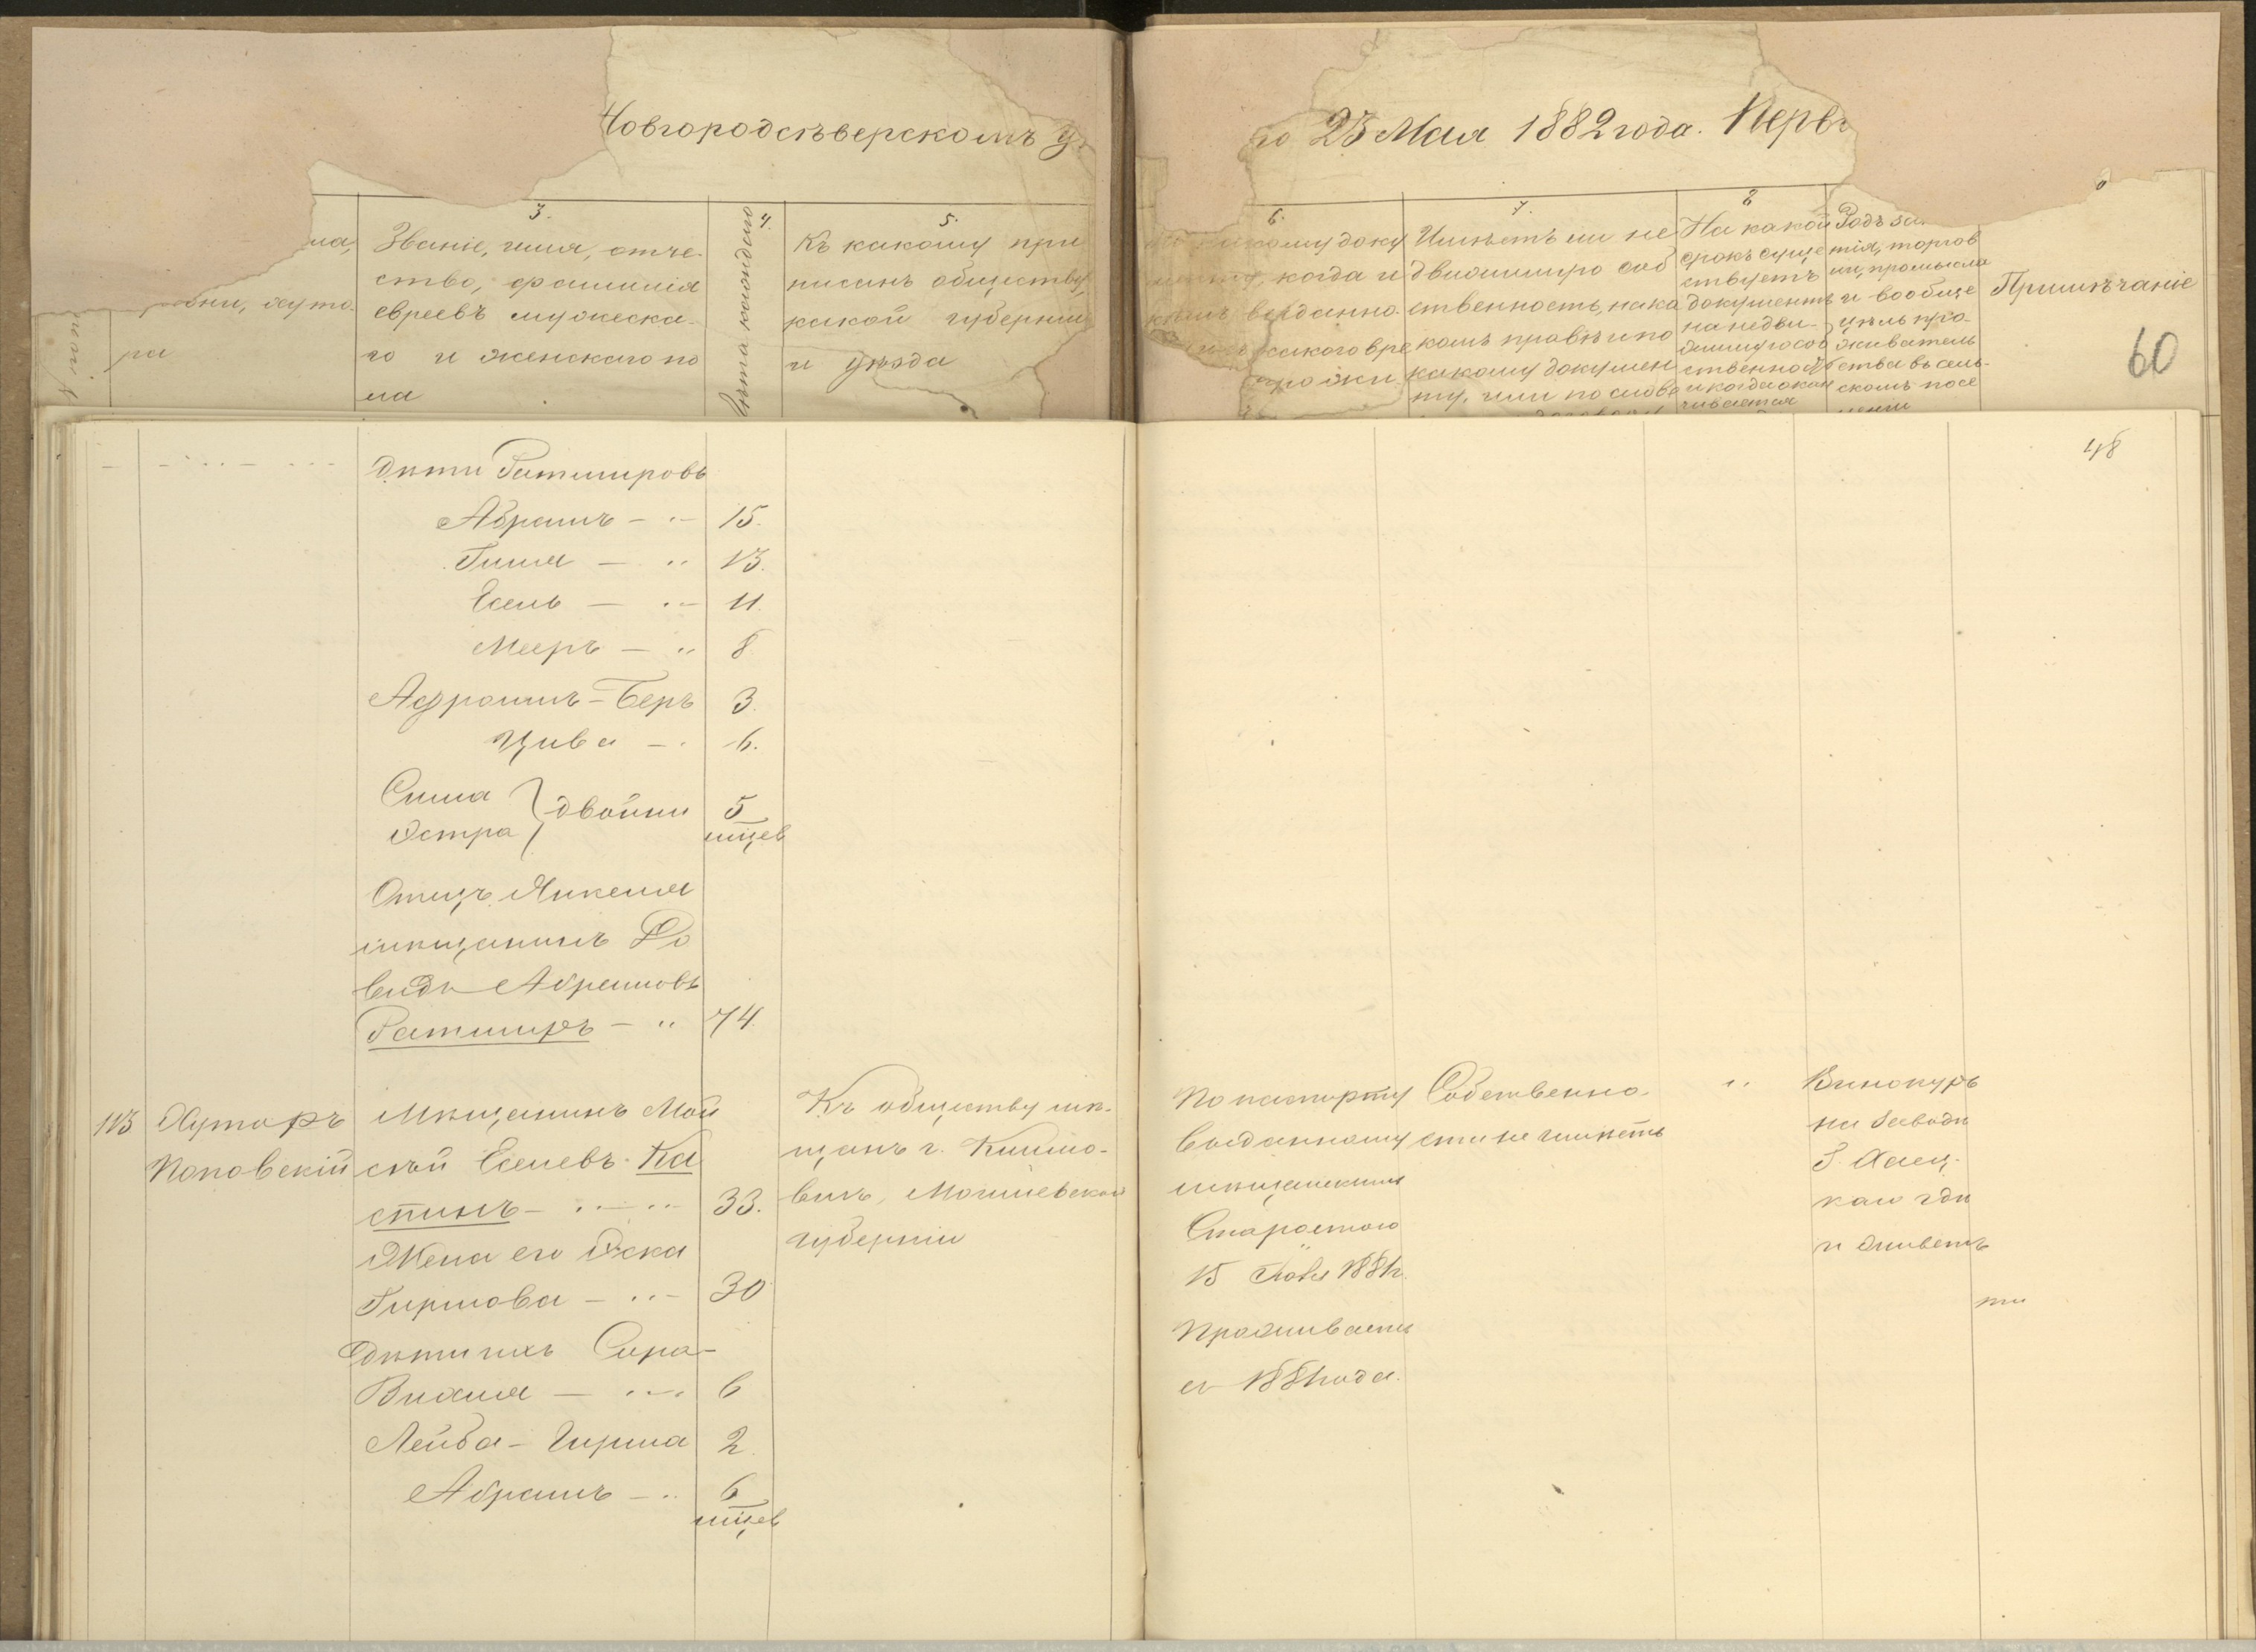 Новгородсѣверскомъ у
23 Мая 1882 года. Перв
3.
4.
5.
Званіе, имя, отче-
ство, фамилія
евреевъ мужеска-
го и женскаго по
ла
Лѣта каждаго
Къ какому при
писанъ обществу,
какой губерніи
и уѣзда
они, хуто-
ра
6.
7.
8
какому доку
когда и
кѣмъ выданно-
какого вре
прожи
Имѣетъ ли не
движимую соб
ственность, на ка
комъ правѣ и по
какому докумен
ту, или по слове
На какой
срокъ суще
ствуетъ
документъ
на недви-
жимую соб
ственность
и когда окан
чивается
Родъ за
тія, торгов
ли, промысла
и вообще
цѣль про-
живатель
ства въ сель-
скомъ посе
леніи
Примѣчаніе
60
48
Дѣти Ратмировъ
Абрамъ - 15.
Гиля - 13.
Есель - 11.
Мееръ - 8
Афроимъ-Беръ 3.
Цива - 6.
Сима
Эстра } двойни 5
мѣсяцев
Отецъ Янкеля
мѣщанинъ До
видъ Абрамовъ
Ратмиръ - 74.
113 Хуторъ
Поповскій
Мѣщанинъ Мой
сѣй Еселевъ Ка
спинъ - 33.
Жена его Эска
Гиршова - 30
Дѣти ихъ Сора-
Вихля - 6
Лейба-Гирша 2.
Абрамъ - 6
мѣсяцев
Къ обществу мѣ-
щанъ г. Климо-
вичъ, Могилевской
губерніи
По паспорту
выданному
мѣщанскимъ
Старостою
15 1881г.
Проживаетъ
съ 1881 года.
Собственно-
сти не имѣетъ
Винокуръ
на заводѣ
гдѣ
и живетъ